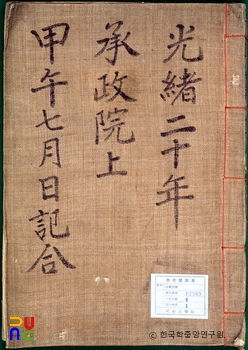 光緖二十年
承政院上
甲午七月日記合
ⓒ 한국학중앙연구원